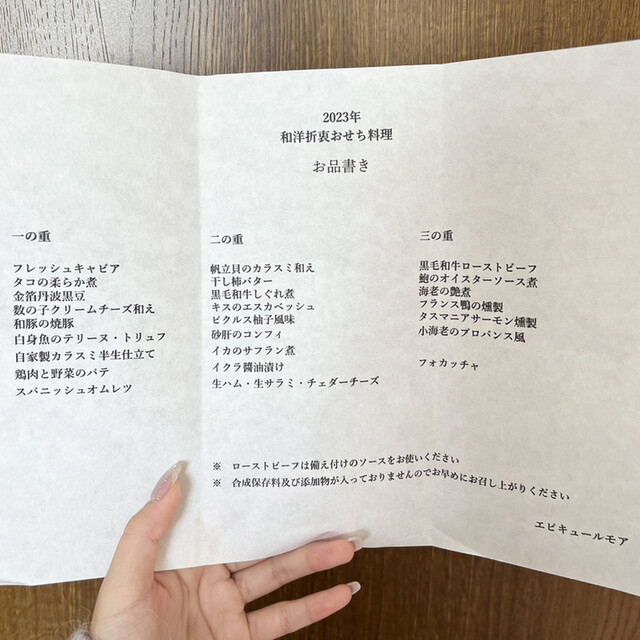 2023年
和洋折衷おせち料理
お品書き
一の重
フレッシュキャビア
タコの柔らか煮
金箔丹波黒豆
数の子クリームチーズ和え
和豚の焼豚
白身魚のテリーヌ・トリュフ
自家製カラスミ半生仕立て
鶏肉と野菜のパテ
スパニッシュオムレツ
二の重
帆立貝のカラスミ和え
干し柿バター
黒毛和牛しぐれ煮
キスのエスカベッシュ
ピクルス柚子風味
砂肝のコンフィ
イカのサフラン煮
イクラ醤油漬け
生ハム・生サラミ・チェダーチーズ
三の重
黒毛和牛ローストビーフ
鮑のオイスターソース煮
海老の艶煮
フランス鴨の燻製
タスマニアサーモン燻製
小海老のプロバンス風
フォカッチャ
※ ローストビーフは備え付けのソースをお使いください
※ 合成保存料及び添加物が入っておりませんのでお早めにお召し上がりください
エピキュールモア